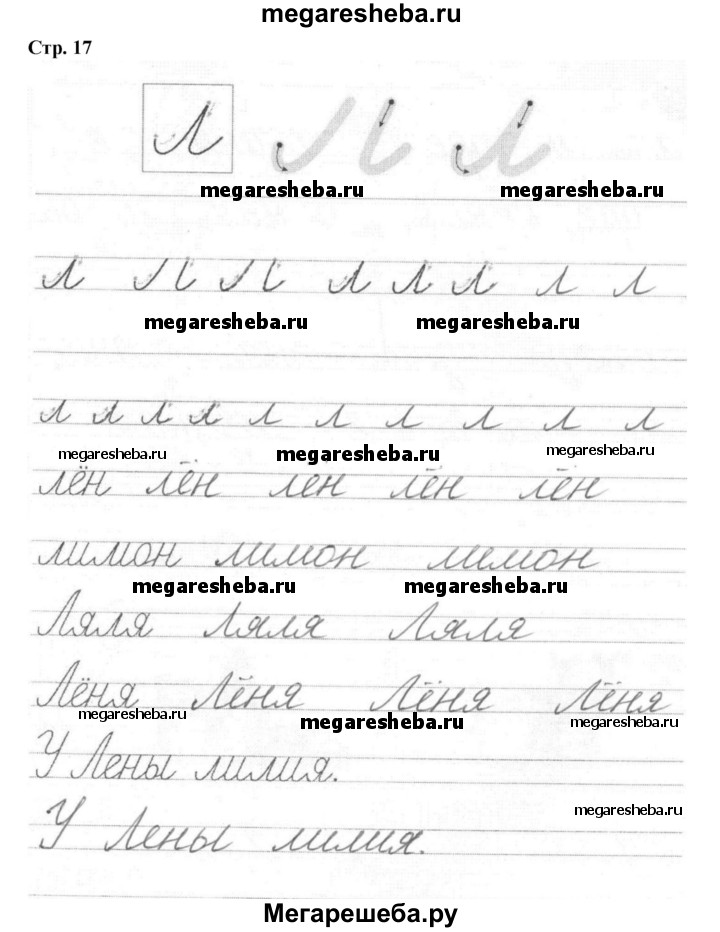 megaresheba.ru
Стр. 17
л л л
megaresheba.ru megaresheba.ru
л л л л л л л л
megaresheba.ru megaresheba.ru
л л л л л л л л л л
megaresheba.ru megaresheba.ru megaresheba.ru
лён лён лен лён лён
лимон лимон лимон
megaresheba.ru megaresheba.ru
Ляля Ляля Ляля
Лёня Лёня Лёня Лёня
megaresheba.ru megaresheba.ru megaresheba.ru
У Лены лилия.
megaresheba.ru
У Лены лилия.
Мегарешеба.ру